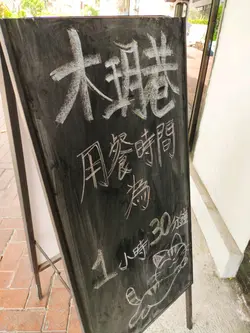 木玥巷
用餐時間
為
1小時30分鐘